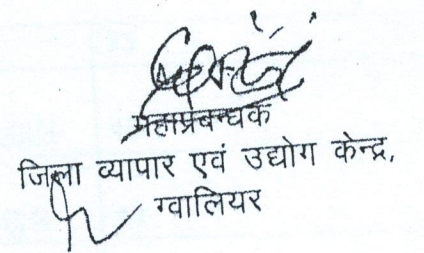 महाप्रबन्धक
जिला व्यापार एवं उद्योग केन्द्र,
ग्वालियर